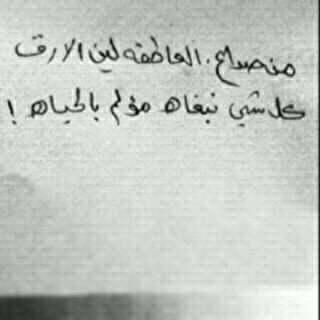 من صداع . العاطفه لين الارق
كل شي نبغاه مؤلم بالحياه !